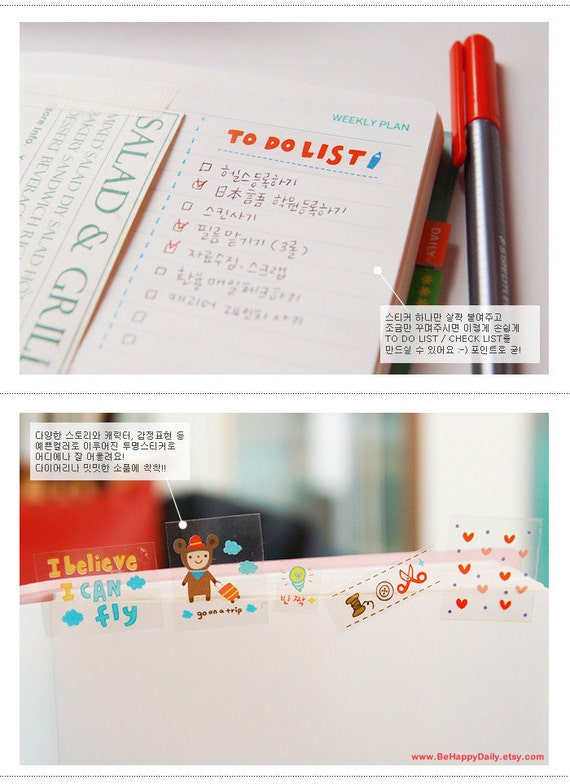 WEEKLY PLAN
TO DO LIST
헬스등록하기
日本言語 학원등록하기
스킨사기
필름 맡기기 (3롤)
자료수집, 스크랩
환율 매일체크하기
캐리어
사기
SALAD & GRILL
MIXED SALAD DIY SALAD
BAKERY SANDWICH RICE
DESSERT BEVERAGE
store info.
DAILY
스티커 하나만 살짝 붙여주고
조금만 꾸며주시면 이렇게 손쉽게
TO DO LIST / CHECK LIST를
만드실 수 있어요 :-) 포인트로 굿!
다양한 스토리와 캐릭터, 감정표현 등
예쁜컬러로 이루어진 투명스티커로
어디에나 잘 어울려요!
다이어리나 밋밋한 소품에 착착!!
I believe
I CAN
fly
go on a trip
반짝
www.BeHappyDaily.etsy.com